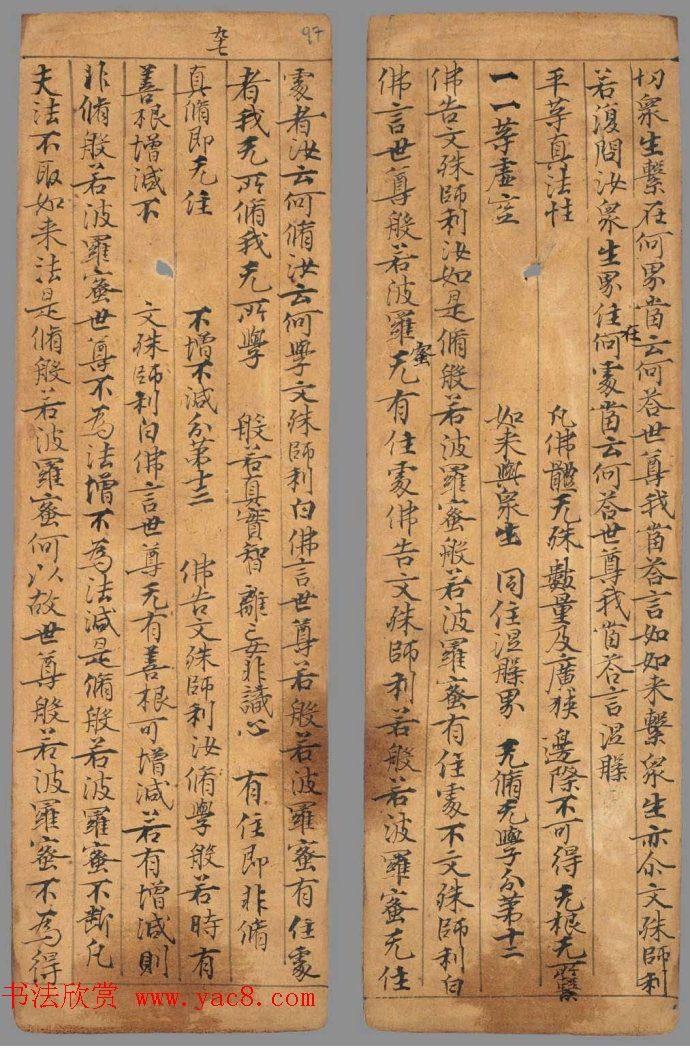 切衆生繫在何界當云何荅世尊我當荅言如如来繫衆生亦尒文殊師利
若復問汝衆生界住在何處當云何荅世尊我當荅言涅槃
平等真法性 凡佛體无殊 數量及廣狹 邊際不可得 无根无所繫
一一等虛空 如来與衆生 同住涅槃界 无脩无學分第十二
佛告文殊師利汝如是脩般若波羅蜜般若波羅蜜有住處不文殊師利白
佛言世尊般若波羅蜜无有住處佛告文殊師利若般若波羅蜜无住
97
處者汝云何脩汝云何學文殊師利白佛言世尊若般若波羅蜜有住處
者我无所脩我无所學 般若真實智 離妄非識心 有住即非脩
真脩即无住 不增不減分第十三 佛告文殊師利汝脩學般若時有
善根增減不 文殊師利白佛言世尊无有善根可增減若有增減則
非脩般若波羅蜜世尊不為法增不為法減是脩般若波羅蜜不斷凡
夫法不取如来法是脩般若波羅蜜何以故世尊般若波羅蜜不為得
书法欣赏 www.yac8.com